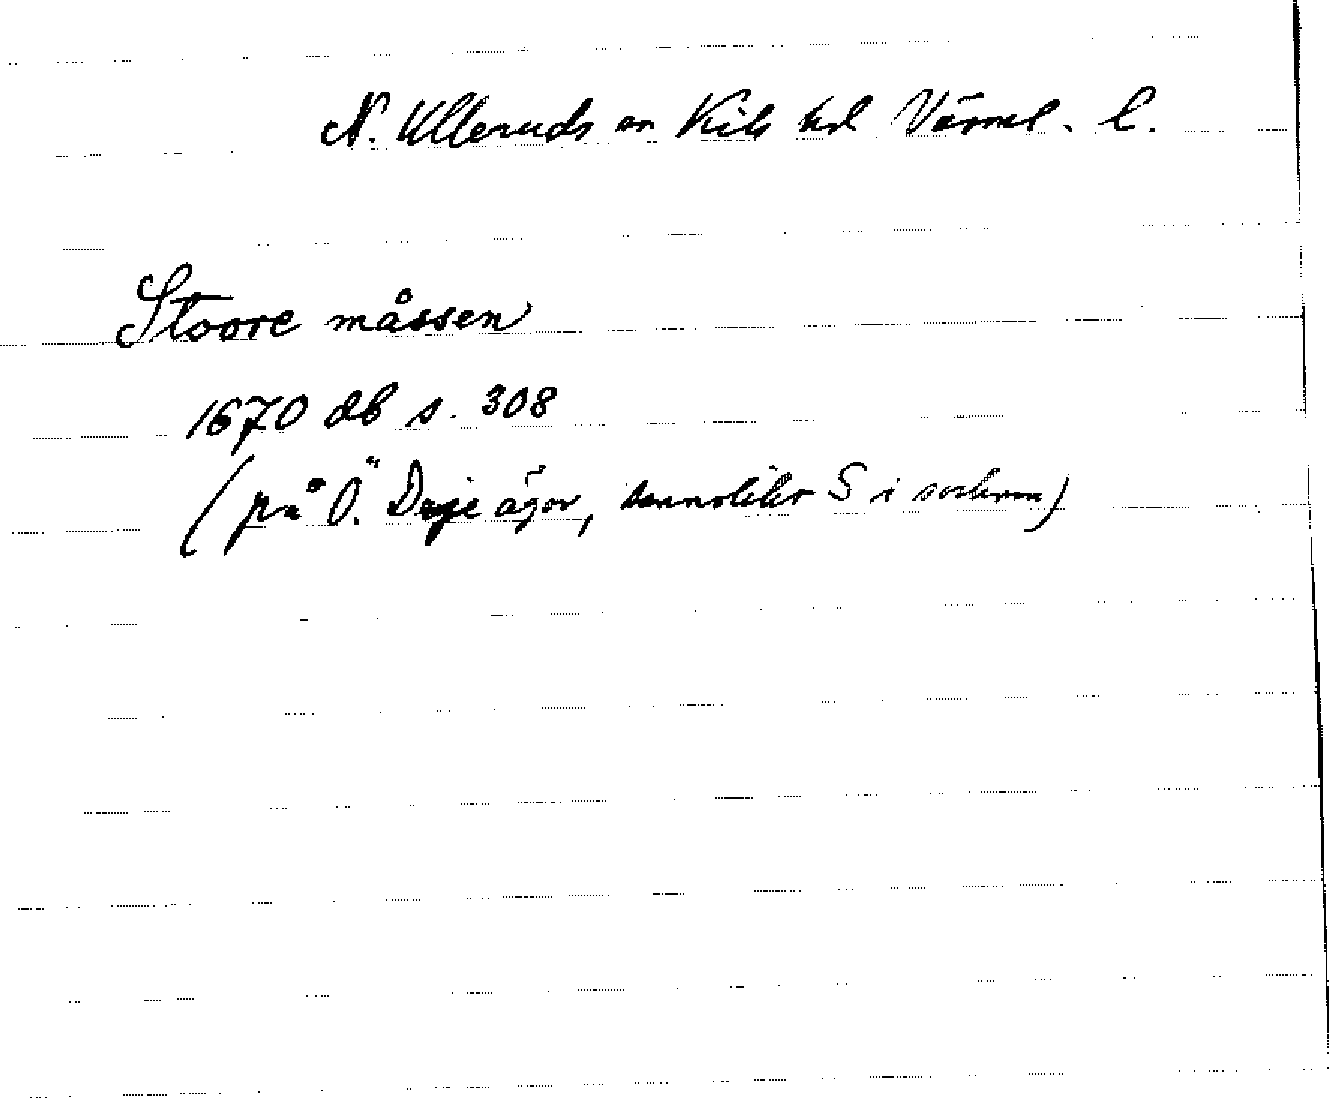 N. Ulleruds sn Kils hd Värml. l.
Stoore måssen
1670 db s. 308
(på Ö. Deje ägor, sannolikt S i socknen)